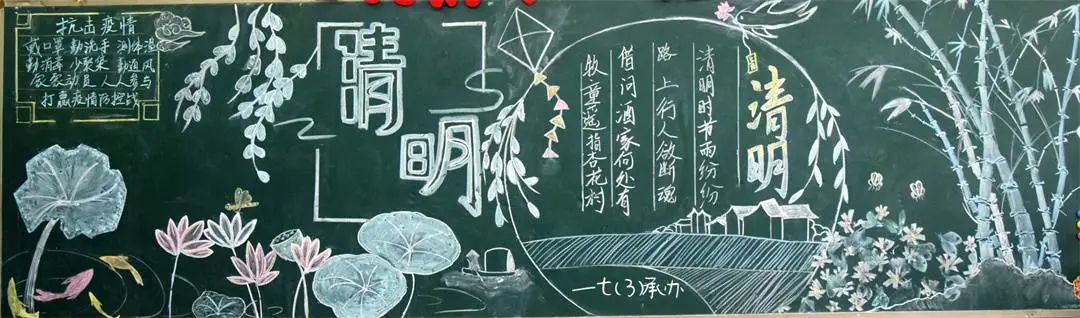 抗击疫情
戴口罩 勤洗手 测体温
勤消毒 少聚集 勤通风
众志动员 人人参与
打赢疫情防控战
清明
清明
清明时节雨纷纷
路上行人欲断魂
借问酒家何处有
牧童遥指杏花村
七(3)承办